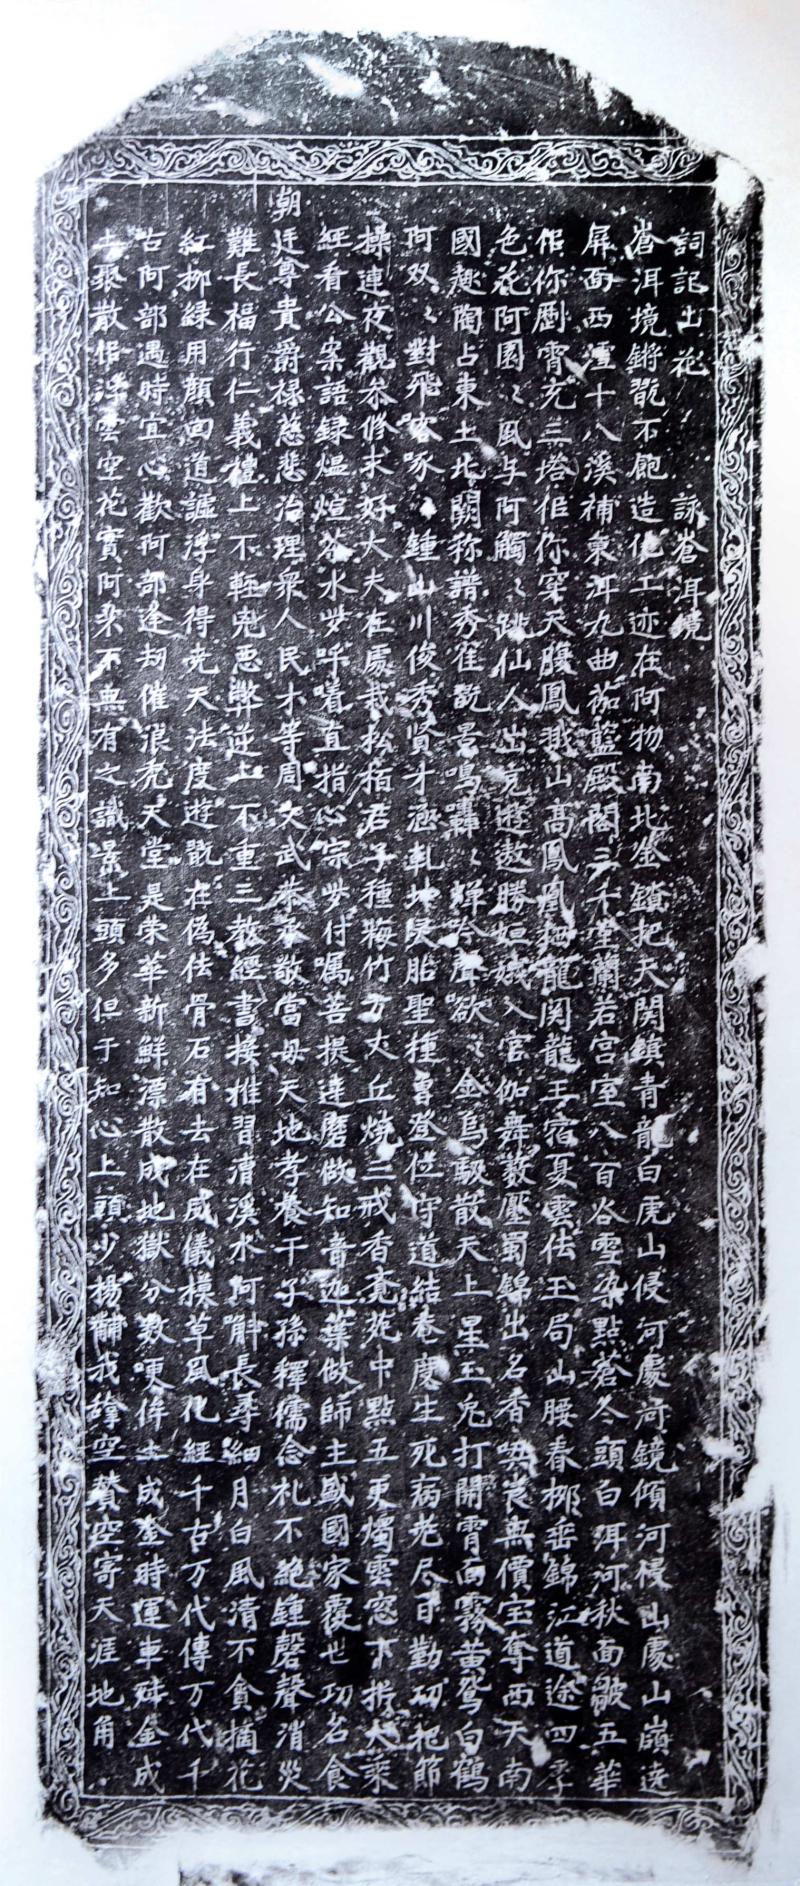 詞記山花 詠蒼洱境
蒼洱境鏘翫不飽造化工迹在阿物南北金鎖把天関鎮青龍白虎山侵河處河鏡傾河侵山處山嶺遶
屏面西淫十八溪補東洱九曲茄藍殿閣三千堂蘭若宮室八百谷雪染點蒼冬頭白洱河秋面皺五華
佀你剧霄充三塔佀你穿天腹鳳羽山高鳳凰栖龍関龍王宿夏雲佉玉局山腰春柳垂錦江道途四季
色花阿園〻風与阿觸〻跳仙人出克遊遨勝姮娥入宮伽舞数壓蜀錦出名香哄喪無價宝奪西天南
國趣陶占東土北闕称譜秀雀翫景鳴囀〻蟬吟声欲〻金烏馺散天上星玉兔打開霄面霧黃鶯白鶴
阿双〻對飛啄啄〻鍾山川俊秀賢才涵乾坤灵胎聖種曾登位守道結菴度生死病老尽日勤功把節
操連夜觀叅修求好大夫在處栽松栢君子種梅竹方丈丘燒三戒香竟苑中點五更燭雲窓下折大乘
經看公案語録煴煊谷水㘴呼嘖直指心宗㘴付嘱菩提達磨做知音迦葉做師主盛國家覆世功名食
朝廷尊貴爵禄慈悲治理衆人民才等周文武恭承敬當母天地孝養干子孫釋儒念礼不絶鍾磬聲消災
難長福行仁義禮上不輕兇惡弊逆上不重三教經書接推習漬溪水阿斛長尋細月白風清不貪摘花
紅柳緑用顏囬道謳浮身得尭天法度遊翫在偽佉骨石有去在威儀模草風化經千古万代傳万代千
古阿部遇時宜心歡阿部逢刼催浪禿天堂是荣華新鮮漂散成地獄分数哽侔土成金時運車舛金成
土聚散佀浮雲空花實阿朵不無有之識景上頭多但于知心上頭少楊黼我捨空賛空寄天涯地角